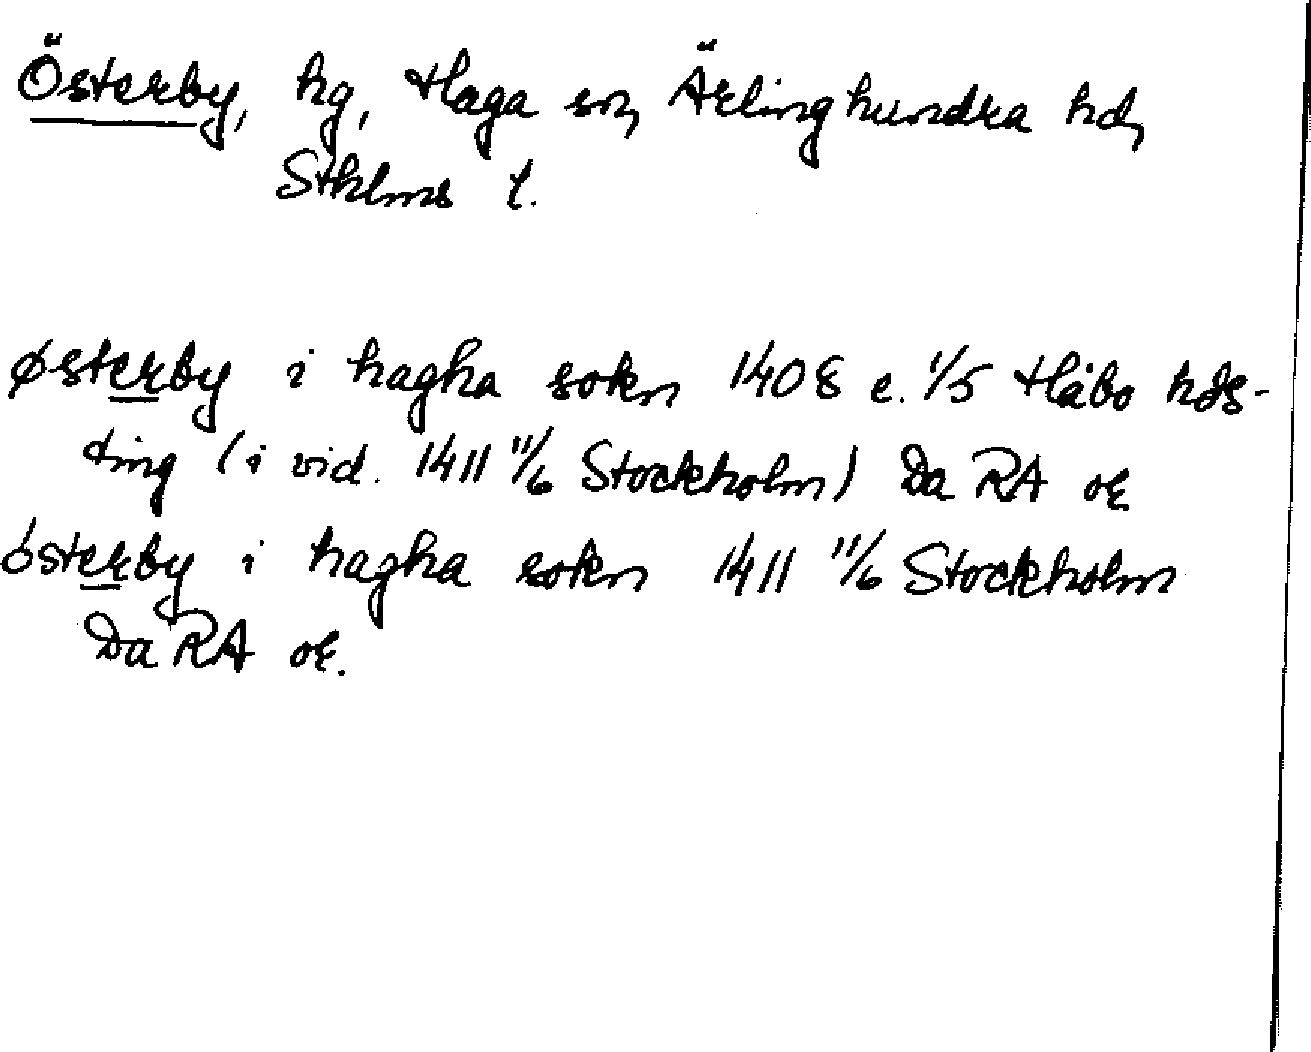 Österby, hg, Haga sn, Ärlinghundra hd,
Stklms l.
østerby i hagha sokn 1408 e. 1/5 Håbo hds-
ting (i vid. 1411 11/6 Stockholm) Da RA or
østerby i hagha sokn 1411 11/6 Stockholm
Da RA or.